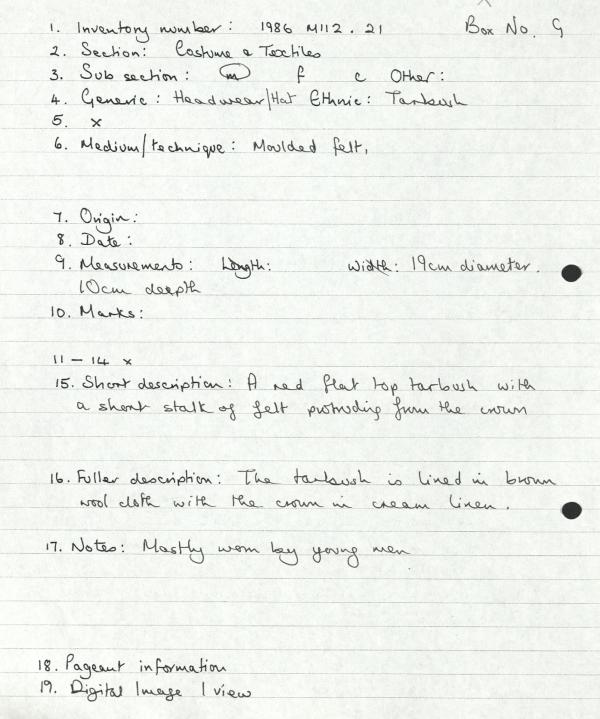 1. Inventory number: 1986 M112.21 Box No. G
2. Section: Costume & Textiles
3. Sub section: m f c Other:
4. Generic: Headwear/Hat Ethnic: Tarbush
5. x
6. Medium/technique: Moulded felt,
7. Origin:
8. Date:
9. Measurements: Length: Width: 19cm diameter.
10cm deepth
10. Marks:
11 - 14 x
15. Short description: A red flat top tarbush with
a short stalk of felt protruding from the crown
16. Fuller description: The tarbush is lined in brown
wool cloth with the crown in cream linen.
17. Notes: Mostly worn by young men
18. Pageant information
19. Digital Image 1 view